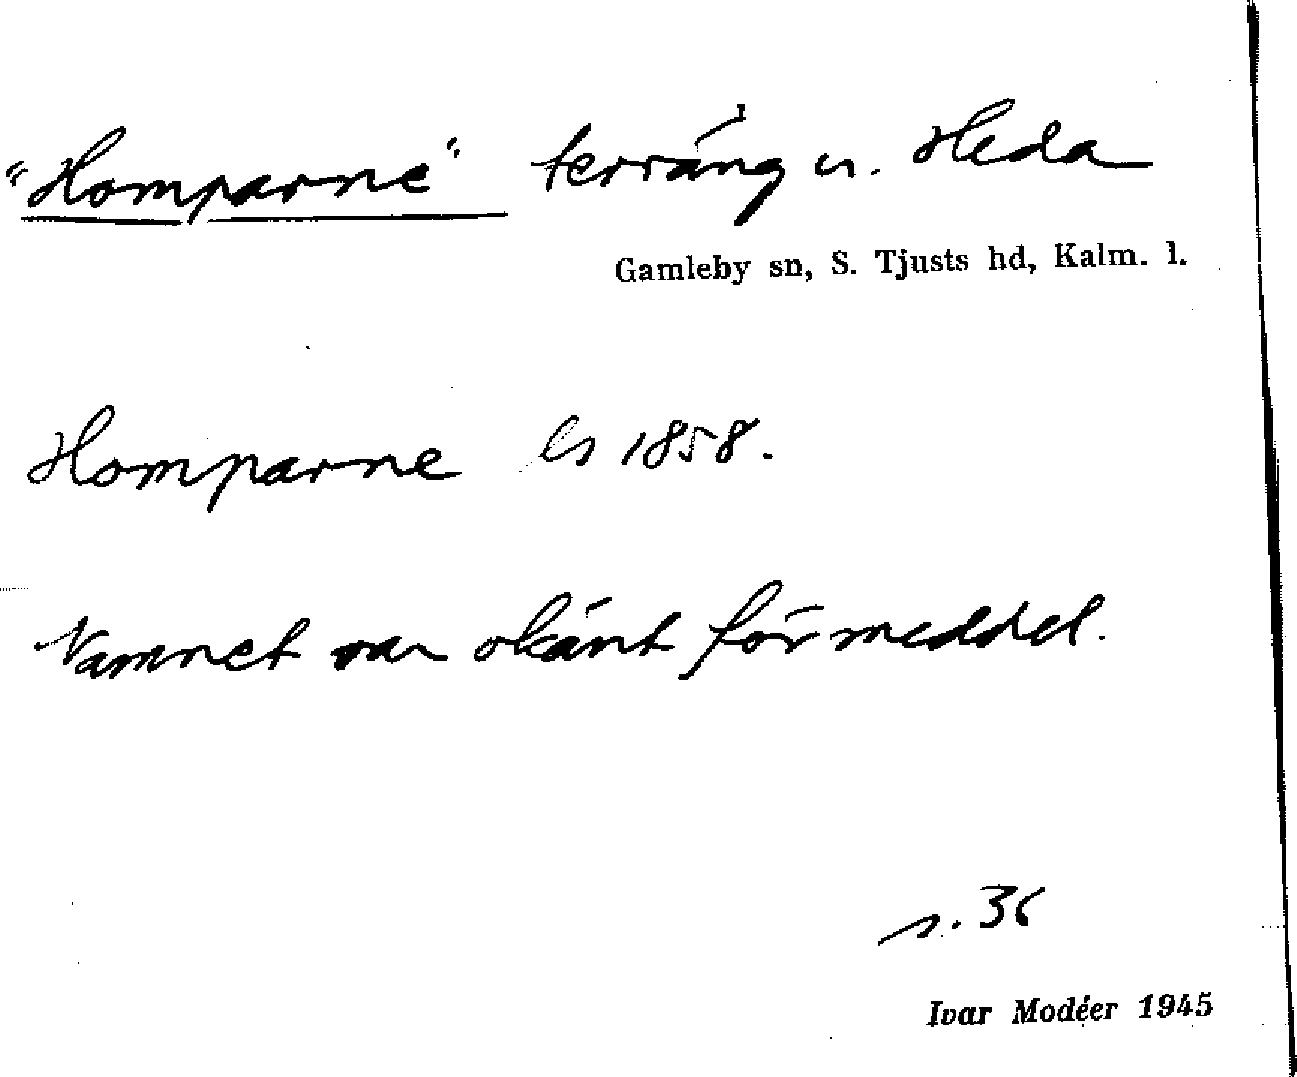 "Homparne" terräng u. Heda
Gamleby sn, S. Tjusts hd, Kalm. l.
Homparne ls 1858.
Namnet var okänt för meddel.
s. 36
Ivar Modéer 1945